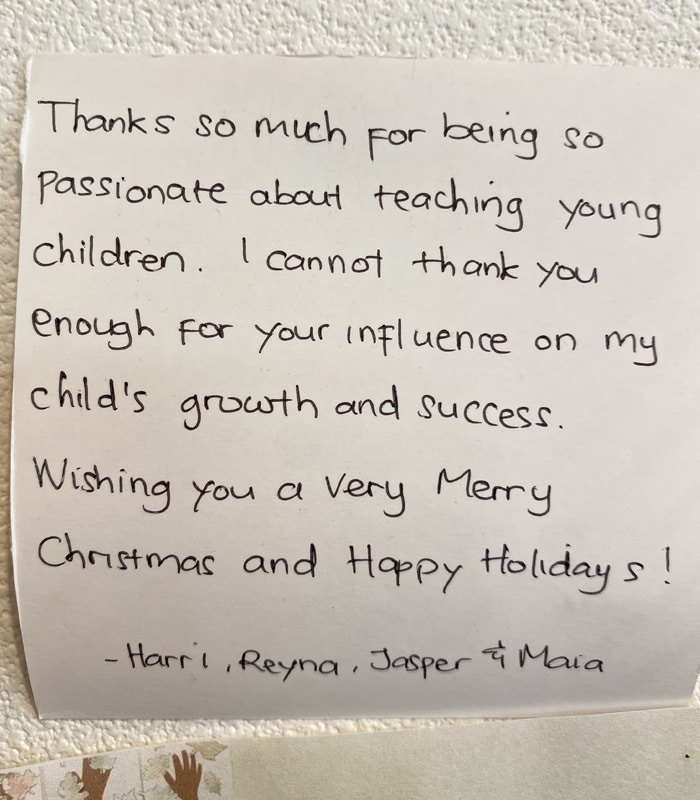 Thanks so much for being so
passionate about teaching young
children. I cannot thank you
enough for your influence on my
child's growth and success.
Wishing you a very Merry
Christmas and Happy Holidays!
- Harri, Reyna, Jasper & Maia